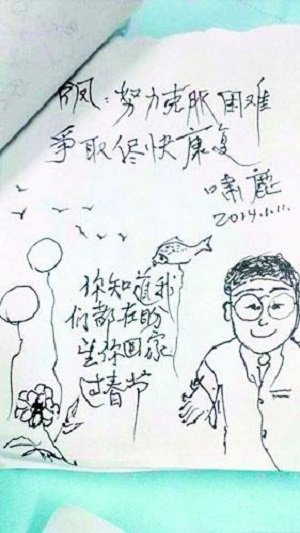 风：努力克服困难
争取尽快康复
啸鹿
2014.1.11.
你知道我
们都在盼
望你回家
过春节